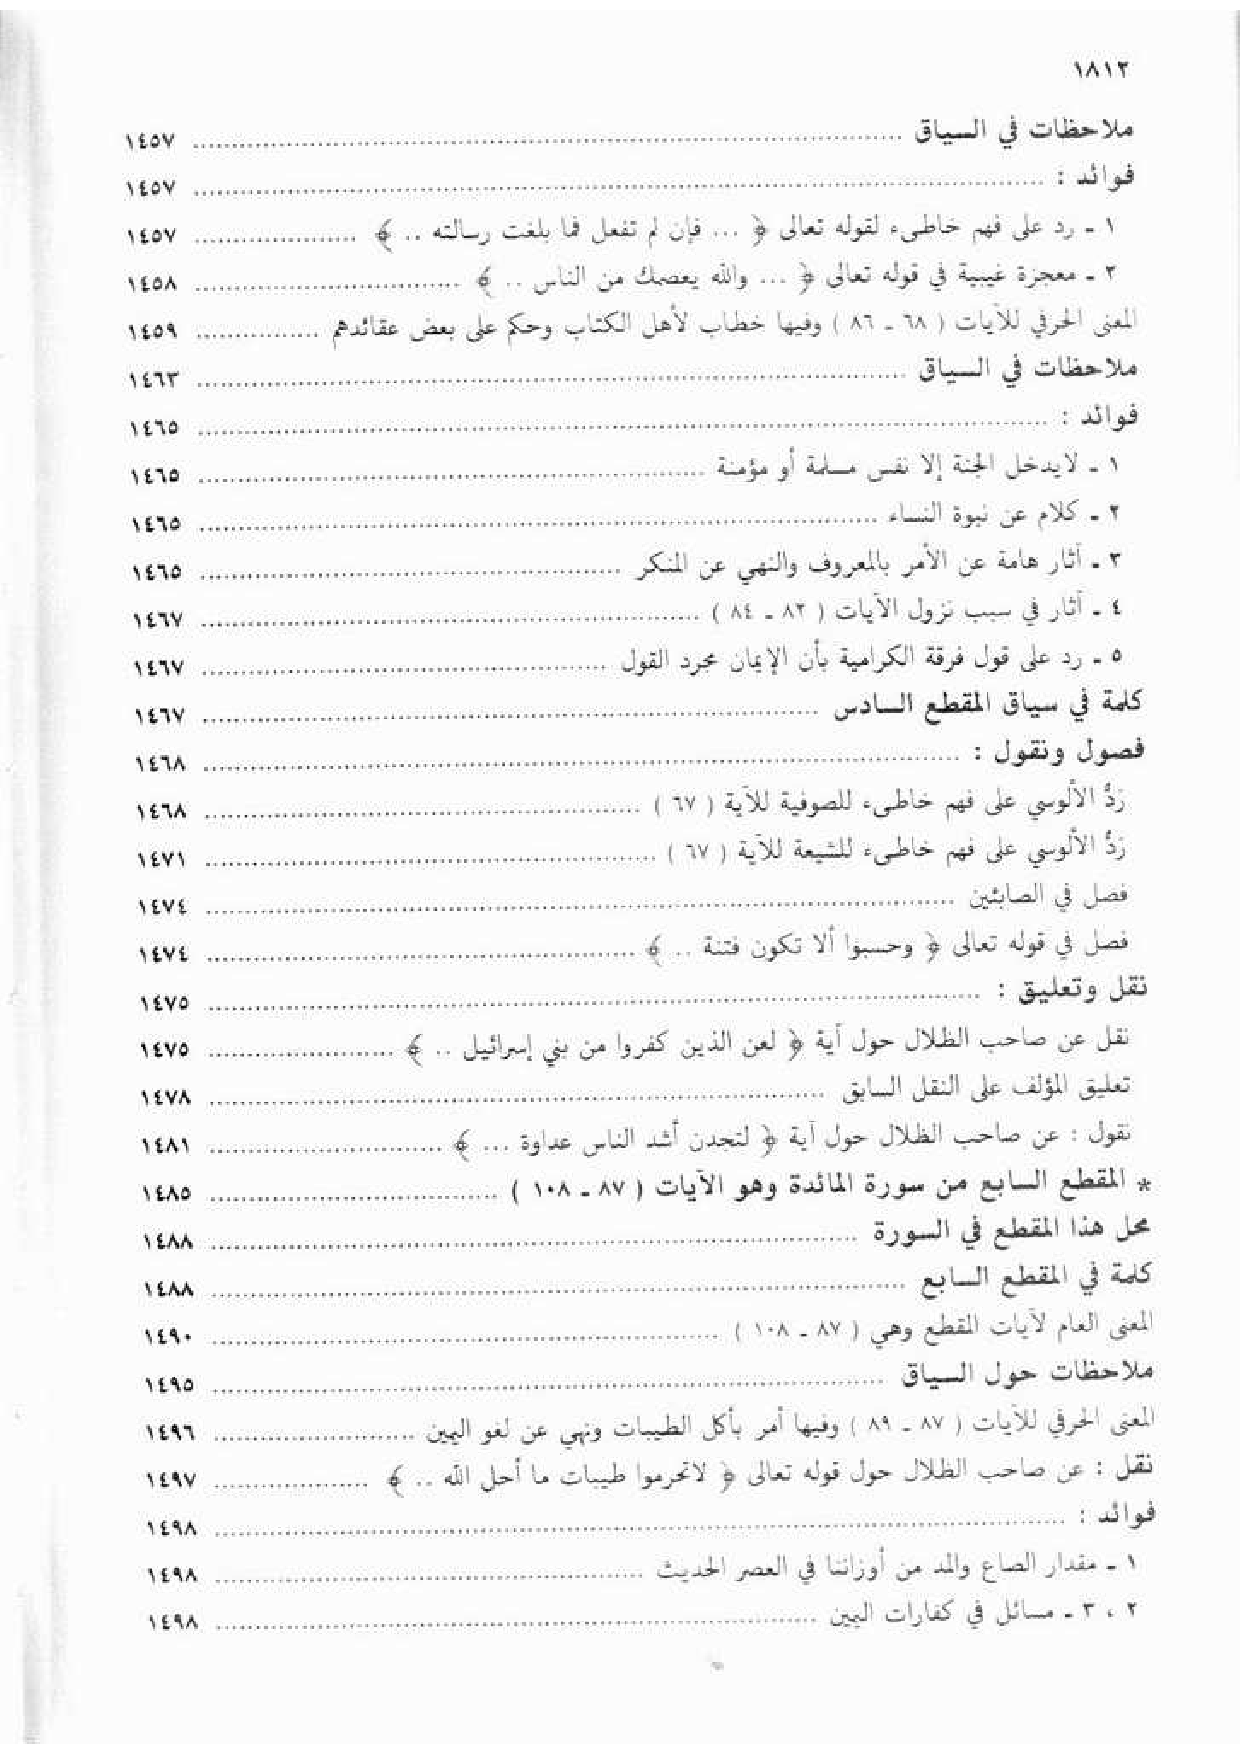 ١٨١٢
ملاحظات في السياق ........ ١٤٥٧
فوائد : ........ ١٤٥٧
١ ـ رد على فهم خاطىء لقوله تعالى ﴿ ... فإن لم تفعل فما بلغت رسالته .. ﴾ ........ ١٤٥٧
٢ ـ معجزة غيبية في قوله تعالى ﴿ ... والله يعصمك من الناس .. ﴾ ........ ١٤٥٨
المعنى الحرفي للآيات ( ٦٨ ـ ٨٦ ) وفيها خطاب لأهل الكتاب وحكم على بعض عقائدهم ........ ١٤٥٩
ملاحظات في السياق ........ ١٤٦٣
فوائد : ........ ١٤٦٥
١ ـ لايدخل الجنة إلا نفس مسلمة أو مؤمنة ........ ١٤٦٥
٢ ـ كلام عن نبوة النساء ........ ١٤٦٥
٣ ـ آثار هامة عن الأمر بالمعروف والنهي عن المنكر ........ ١٤٦٥
٤ ـ آثار في سبب نزول الآيات ( ٨٢ ـ ٨٤ ) ........ ١٤٦٧
٥ ـ رد على قول فرقة الكرامية بأن الإيمان مجرد القول ........ ١٤٦٧
كلمة في سياق المقطع السادس ........ ١٤٦٧
فصول ونقول : ........ ١٤٦٨
رَدُّ الألوسي على فهم خاطىء للصوفية للآية ( ٦٧ ) ........ ١٤٦٨
رَدُّ الألوسي على فهم خاطىء للشيعة للآية ( ٦٧ ) ........ ١٤٧١
فصل في الصابئين ........ ١٤٧٤
فصل في قوله تعالى ﴿ وحسبوا ألا تكون فتنة .. ﴾ ........ ١٤٧٤
نقل وتعليق : ........ ١٤٧٥
نقل عن صاحب الظلال حول آية ﴿ لعن الذين كفروا من بني إسرائيل .. ﴾ ........ ١٤٧٥
تعليق المؤلف على النقل السابق ........ ١٤٧٨
نقول : عن صاحب الظلال حول آية ﴿ لتجدن أشد الناس عداوة ... ﴾ ........ ١٤٨١
* المقطع السابع من سورة المائدة وهو الآيات ( ٨٧ ـ ١٠٨ ) ........ ١٤٨٥
محل هذا المقطع في السورة ........ ١٤٨٨
كلمة في المقطع السابع ........ ١٤٨٨
المعنى العام لآيات المقطع وهي ( ٨٧ ـ ١٠٨ ) ........ ١٤٩٠
ملاحظات حول السياق ........ ١٤٩٥
المعنى الحرفي للآيات ( ٨٧ ـ ٨٩ ) وفيها أمر بأكل الطيبات ونهي عن لغو اليمين ........ ١٤٩٦
نقل : عن صاحب الظلال حول قوله تعالى ﴿ لاتحرموا طيبات ما أحل الله .. ﴾ ........ ١٤٩٧
فوائد : ........ ١٤٩٨
١ ـ مقدار الصاع والمد من أوزاننا في العصر الحديث ........ ١٤٩٨
٢ ، ٣ ـ مسائل في كفارات اليمين ........ ١٤٩٨